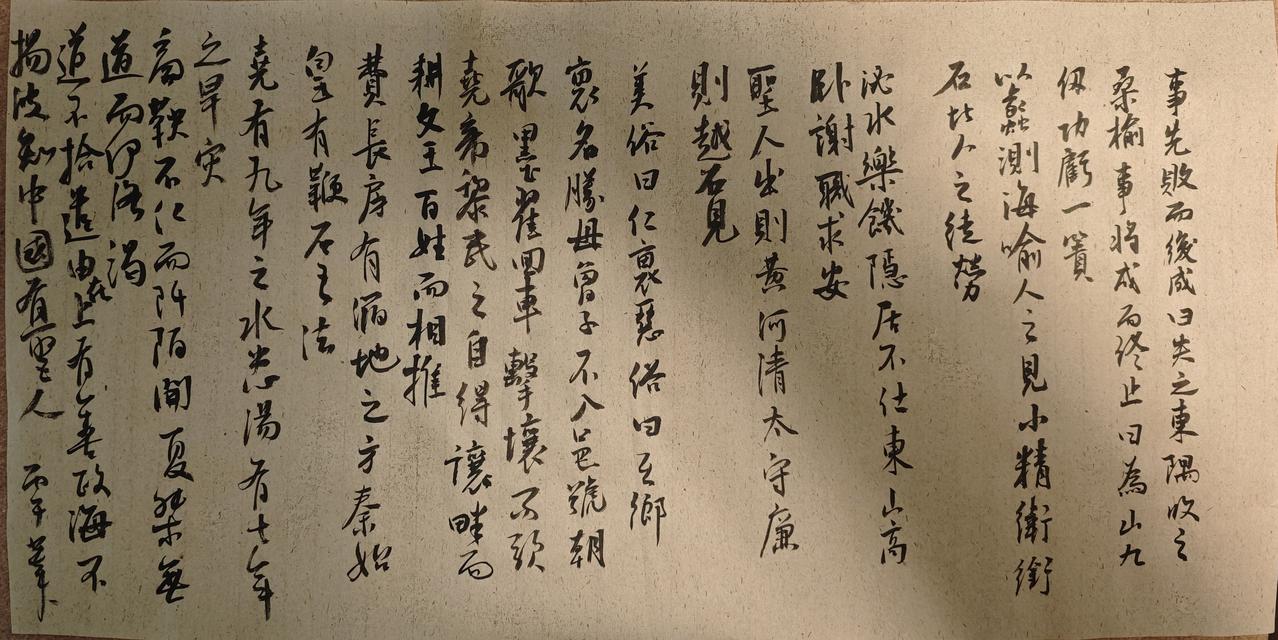 事先敗而後成曰失之東隅收之
桑榆事將成而終止曰為山九
仭功虧一簣
以蠡測海喻人之見小精衛銜
石比人之徒勞
泌水樂饑隱居不仕東山高
卧謝職求安
聖人出則黄河清太守廉
則越石見
美俗曰仁裏惡俗曰互鄉
裏名勝母曾子不入邑號朝
歌墨翟回車擊壤而歌
堯帝黎民之自得讓畔而
耕文王百姓而相推
費長房有縮地之方秦始
皇有鞭石之法
堯有九年之水患湯有七年
之旱災
商鞅不仁而阡陌開夏桀無
道而伊洛竭
道不拾遺由在上有善政海不
揚波知中國有聖人